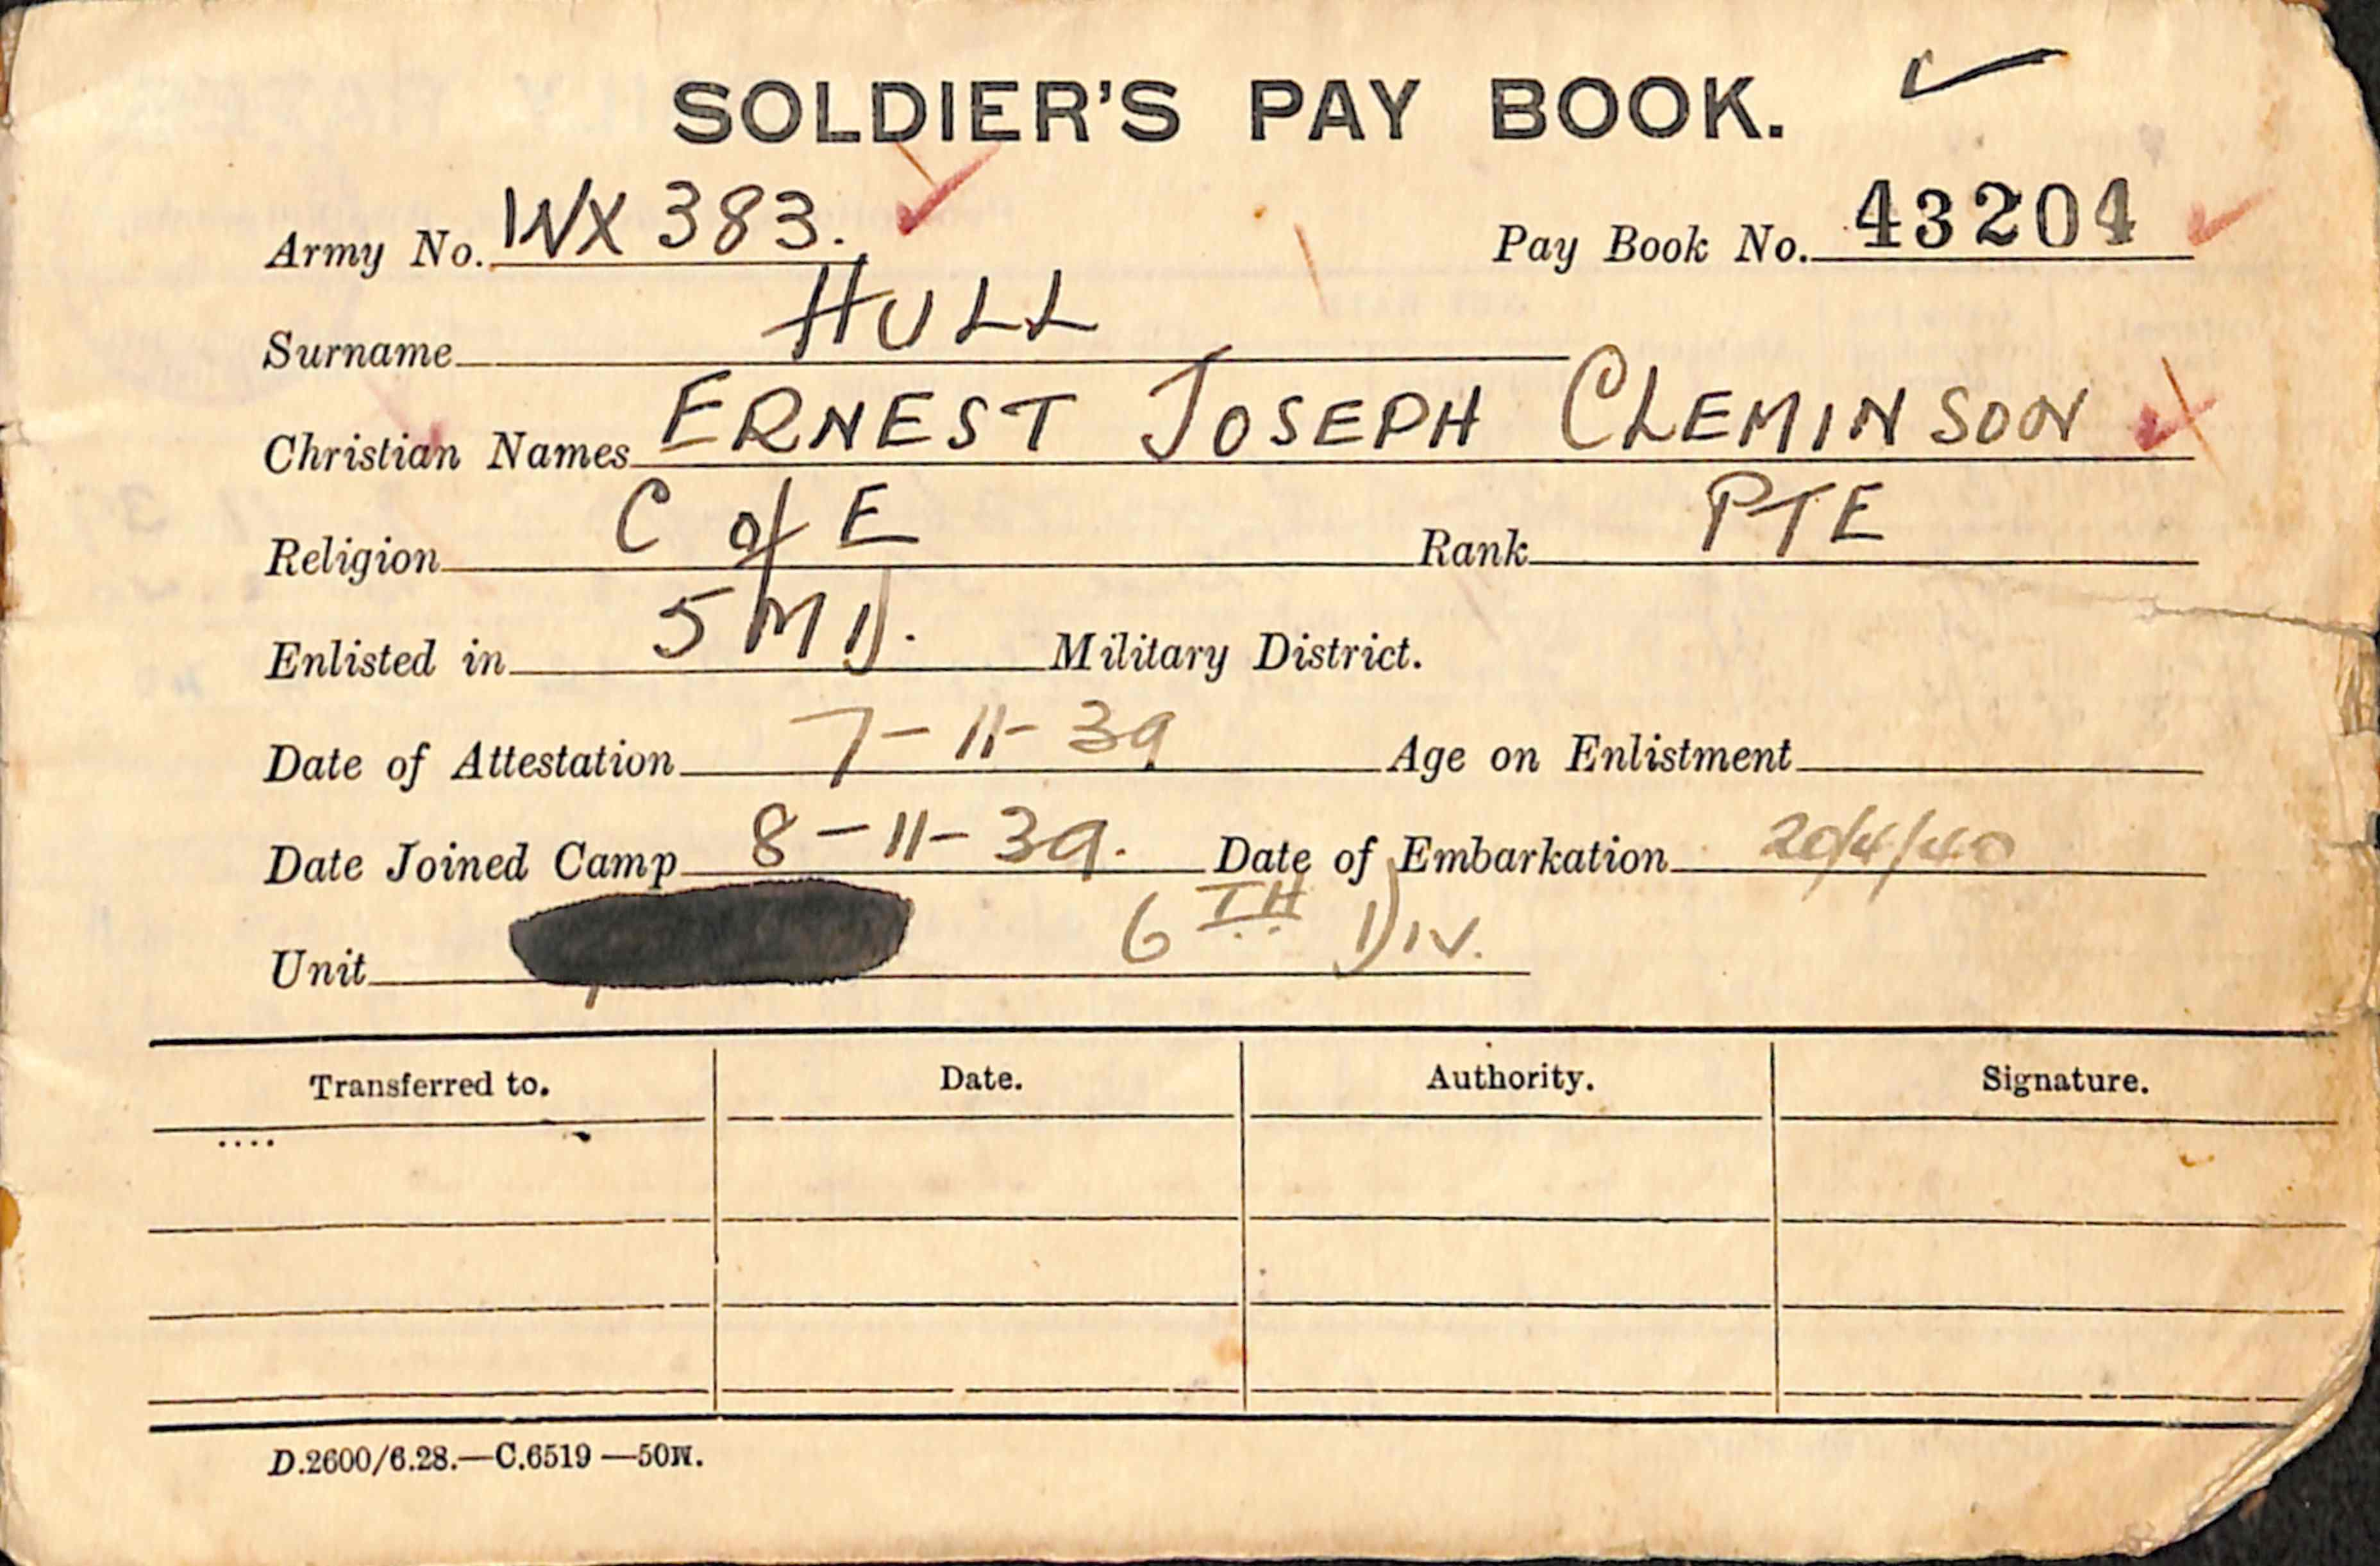 SOLDIER'S PAY BOOK.
Army No. WX 383. Pay Book No. 43204
Surname HULL
Christian Names ERNEST JOSEPH CLEMINSON
Religion C of E Rank PTE
Enlisted in 5 MD. Military District.
Date of Attestation 7-11-39 Age on Enlistment
Date Joined Camp 8-11-39. Date of Embarkation 20/4/40
Unit 6TH DIV.
Transferred to. Date. Authority. Signature.
D.2600/6.28.—C.6519—50M.